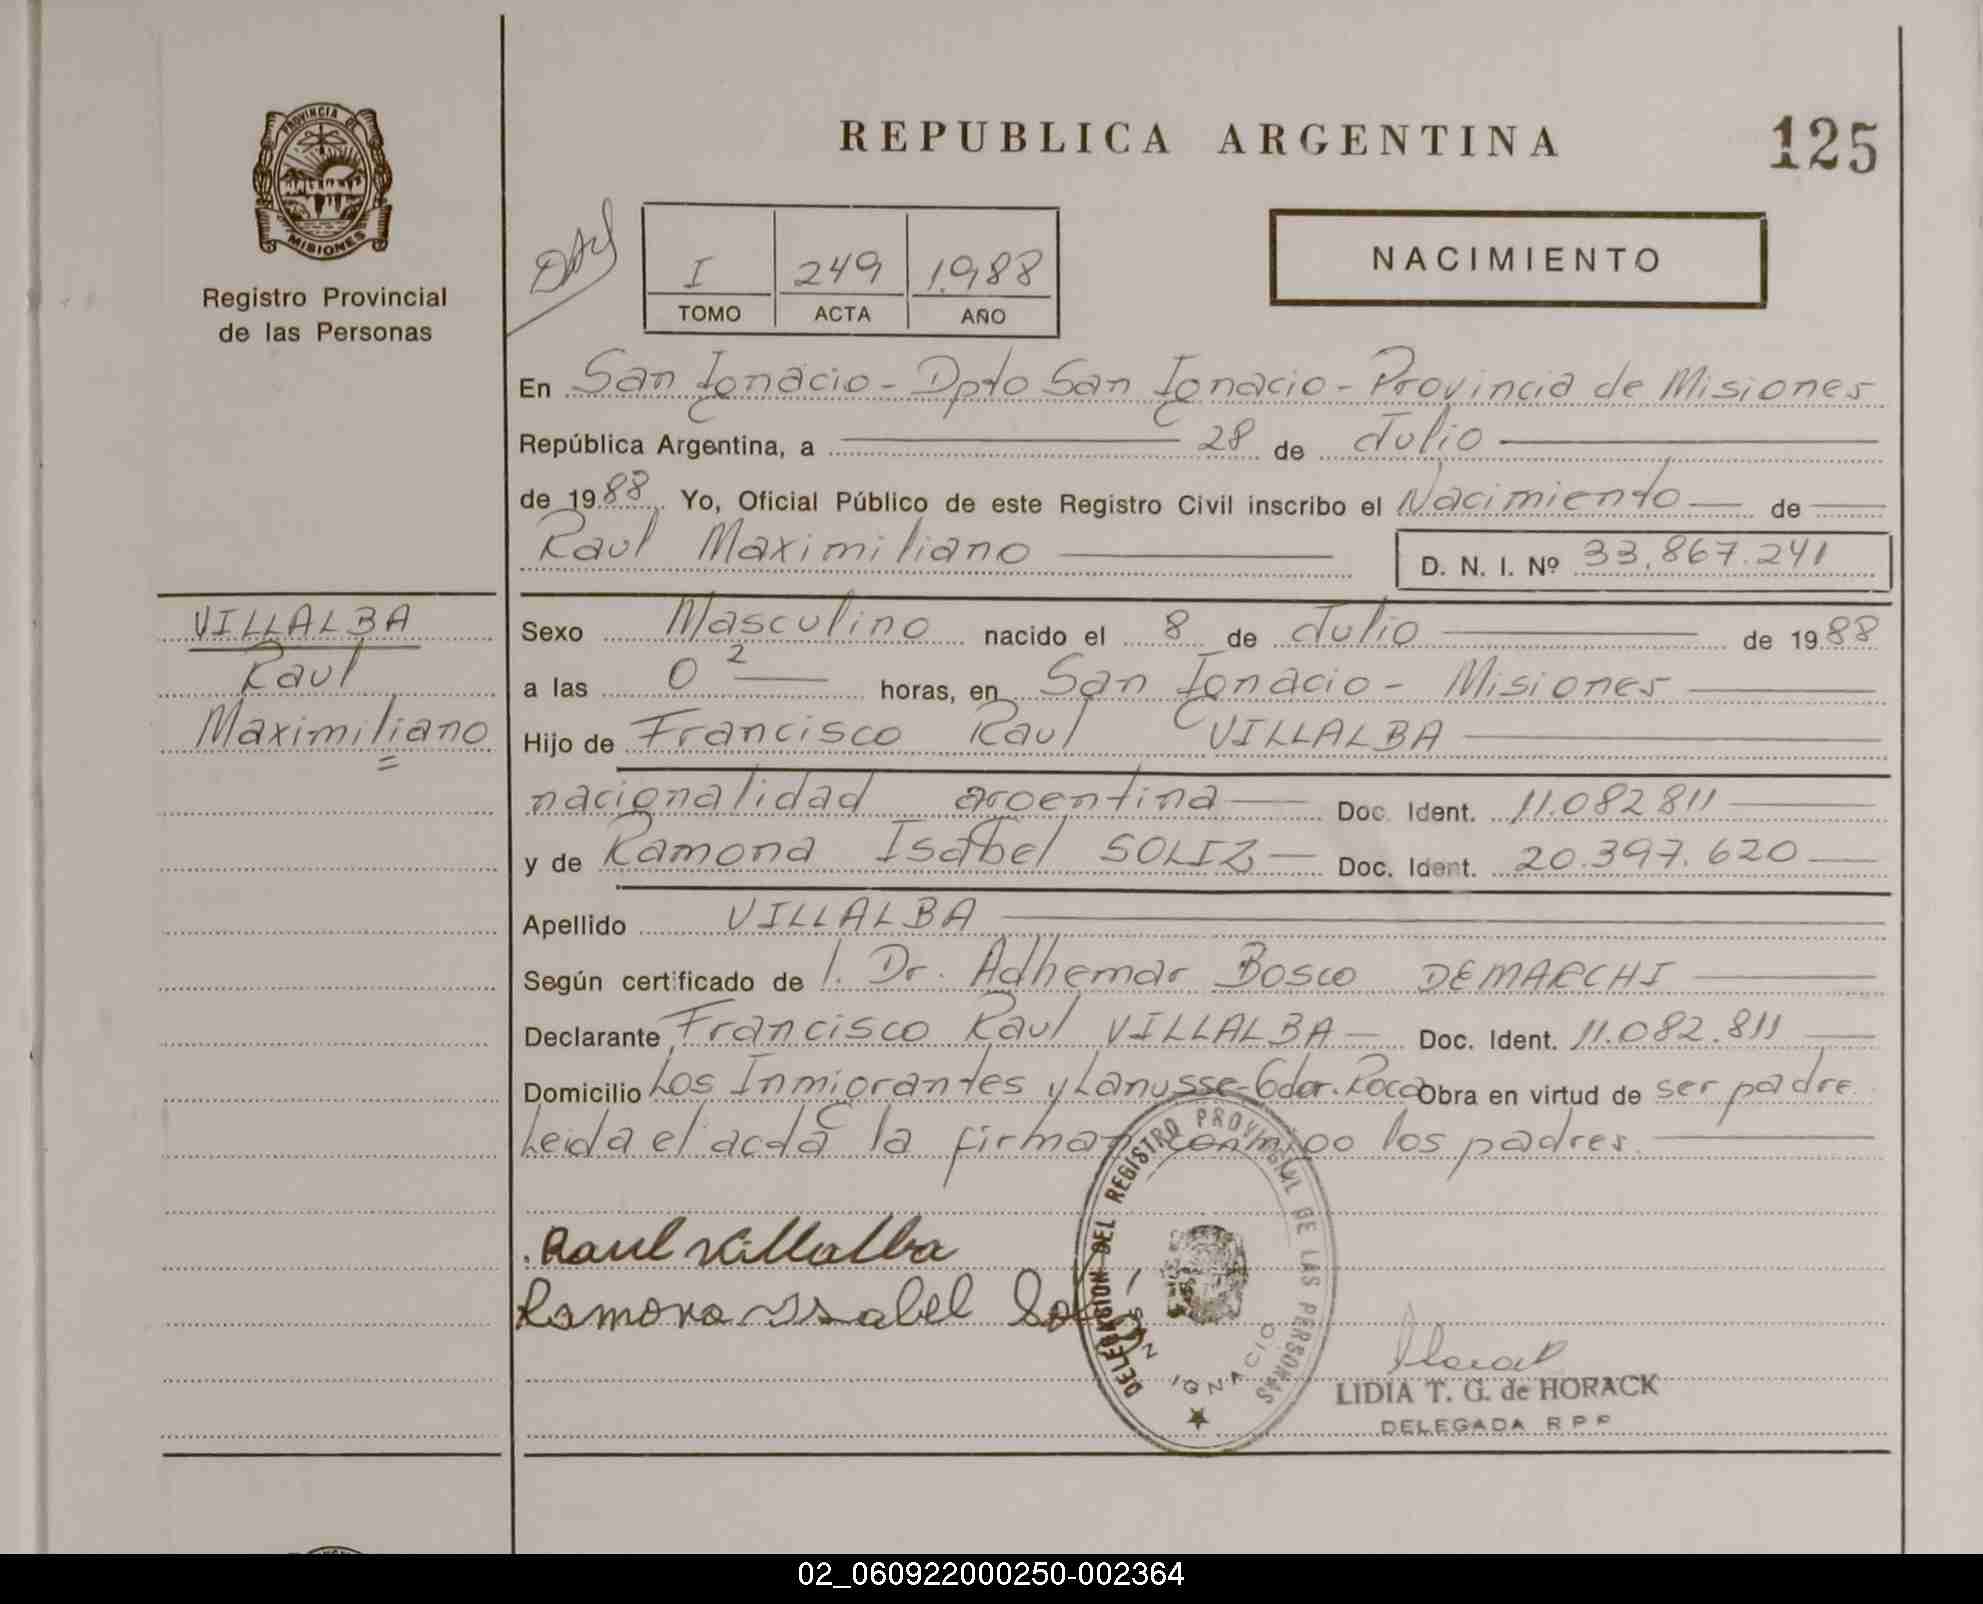 PROVINCIA DE
MISIONES
Registro Provincial
de las Personas
REPUBLICA ARGENTINA
125
I 249 1.988
TOMO ACTA AÑO
NACIMIENTO
En San Ignacio - Dpto San Ignacio - Provincia de Misiones
República Argentina, a 28 de Julio
de 1988 Yo, Oficial Público de este Registro Civil inscribo el Nacimiento de
Raul Maximiliano D. N. I. Nº 33.867.241
VILLALBA
Raul
Maximiliano
Sexo Masculino nacido el 8 de Julio de 1988
a las 0 2 horas, en San Ignacio - Misiones
Hijo de Francisco Raul VILLALBA
nacionalidad argentina Doc. Ident. 11.082 811
y de Ramona Isabel SOLIZ Doc. Ident. 20.397.620
Apellido VILLALBA
Según certificado de l. Dr. Adhemar Bosco DEMARCHI
Declarante Francisco Raul VILLALBA Doc. Ident. 11.082.811
Domicilio Los Inmigrantes y Lanusse-Gdor. Roca Obra en virtud de ser padre
Leida el acta la firman conmigo los padres.
Raul Villalba
Ramona Isabel
DELEGACION DEL REGISTRO PROVINCIAL DE LAS PERSONAS
SAN IGNACIO
LIDIA T. G. de HORACK
DELEGADA R P P
02_060922000250-002364